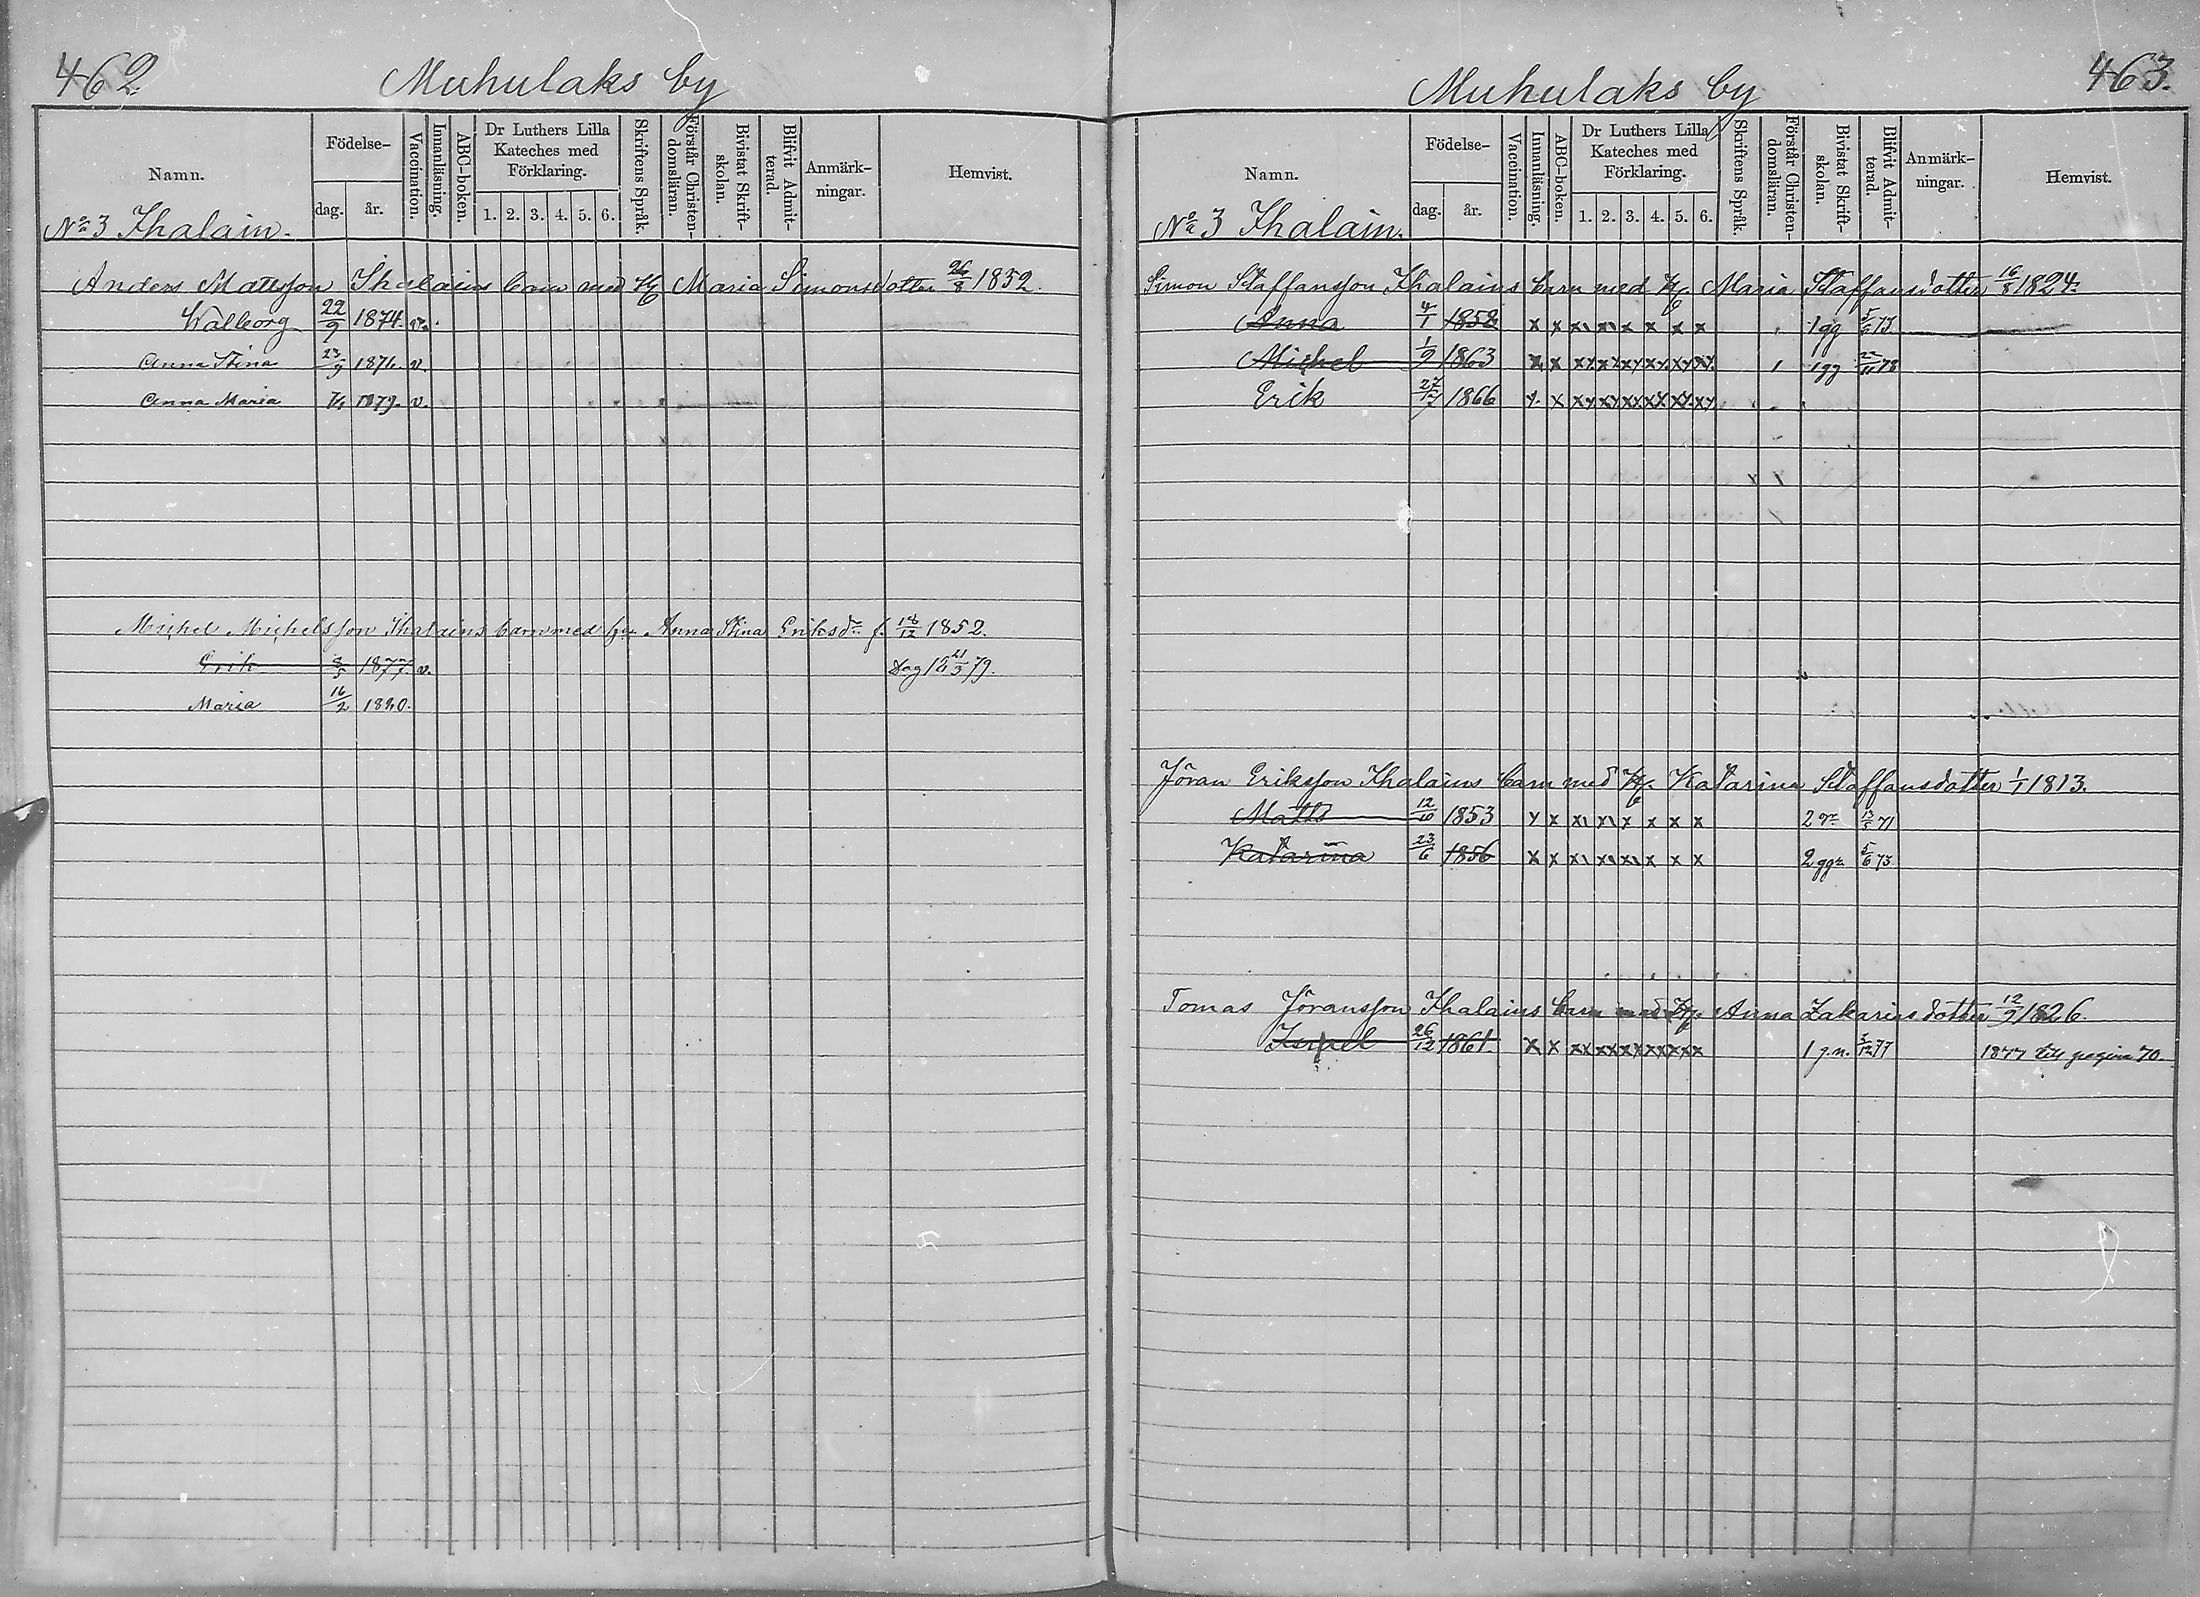 462 Muhulaks by
Namn. Födelse- dag. år. Vaccination. Innanläsning. ABC-boken. Dr Luthers Lilla Kateches med Förklaring. 1. 2. 3. 4. 5. 6. Skriftens Språk. Förstår Christendomsläran. Bivistat Skriftskolan. Blifvit Admitterad. Anmärkningar. Hemvist.
No 3 Ihalain.
Anders Mattsson Ihalains barn med Maria Simonsdotter 26/8 1852.
Walborg 22/9 1874. v.
Anna Stina 23/9 1876. v.
Anna Maria 1879. v.
Michel Michelsson Ihalains barn med Anna Stina Eriksdr f. 18/12 1852.
Erik 8/5 1877. v. 21/3 79.
Maria 16/2 1880.
Muhulaks by 463.
Namn. Födelse- dag. år. Vaccination. Innanläsning. ABC-boken. Dr Luthers Lilla Kateches med Förklaring. 1. 2. 3. 4. 5. 6. Skriftens Språk. Förstår Christendomsläran. Bivistat Skriftskolan. Blifvit Admitterad. Anmärkningar. Hemvist.
No 3 Ihalain.
Simon Staffansson Ihalains barn med Hu. Maria Staffansdotter 16/8 1824.
Anna 4/1 1858 x x x x x x x x 1 gg 5/6 73
Michel 1/9 1863 x x xx xx xx xx xx xx 1 1 gg 22/11 78
Erik 27/7 1866 x x xx xx xx xx xx xx
Jöran Eriksson Ihalains barn med Hu. Katarina Staffansdotter 1/1 1813.
Matts 12/10 1853 x x x x x x x x 2 gr 13/5 71
Katarina 23/6 1856 x x x x x x x x 2 ggr 5/6 73
Tomas Jöransson Ihalains barn med Hu. Anna Zakariasdotter 12/9 1826.
Israel 26/12 1861. x x xx xx xx xx xx x 1 g.n. 77 1877 till pagina 70.